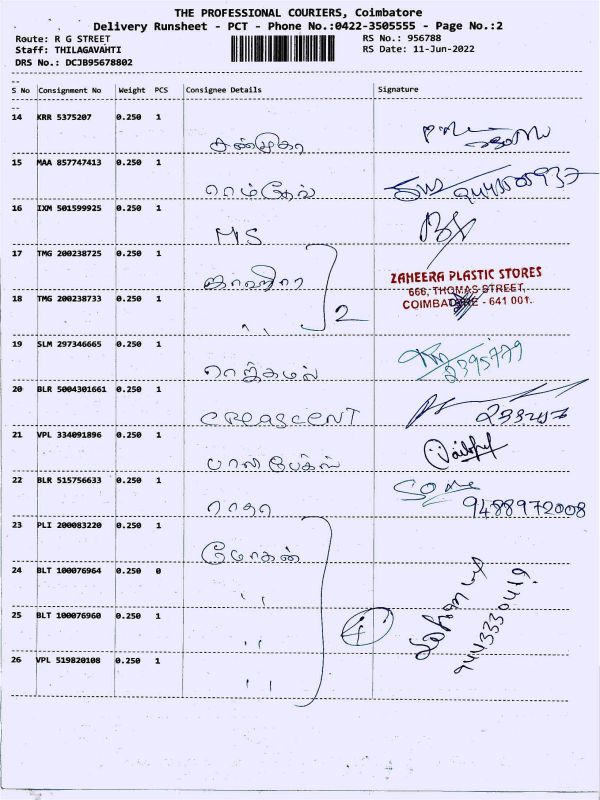 THE PROFESSIONAL COURIERS, Coimbatore
Delivery Runsheet - PCT - Phone No.:0422-3505555 - Page No.:2
Route: R G STREET RS No.: 956788
Staff: THILAGAVAHTI RS Date: 11-Jun-2022
DRS No.: DCJB95678802
S No Consignment No Weight PCS Consignee Details Signature
14 KRR 5375207 0.250 1
சண்முகா
15 MAA 857747413 0.250 1
ராம்தேவ்
16 IXM 501599925 0.250 1
MS
17 TMG 200238725 0.250 1
ஜாஹிரா
ZAHEERA PLASTIC STORES
666, THOMAS STREET,
COIMBATORE - 641 001.
18 TMG 200238733 0.250 1
" 2
19 SLM 297346665 0.250 1
ராஜ்கமல் 2395779
20 BLR 5004301661 0.250 1
CREASCENT
21 VPL 334091896 0.250 1
22 BLR 515756633 0.250 1
ராதா 9488972008
23 PLI 200083220 0.250 1
மோகன்
24 BLT 100076964 0.250 0
"
25 BLT 100076960 0.250 1
" 4
26 VPL 519820108 0.250 1
"
9443330419